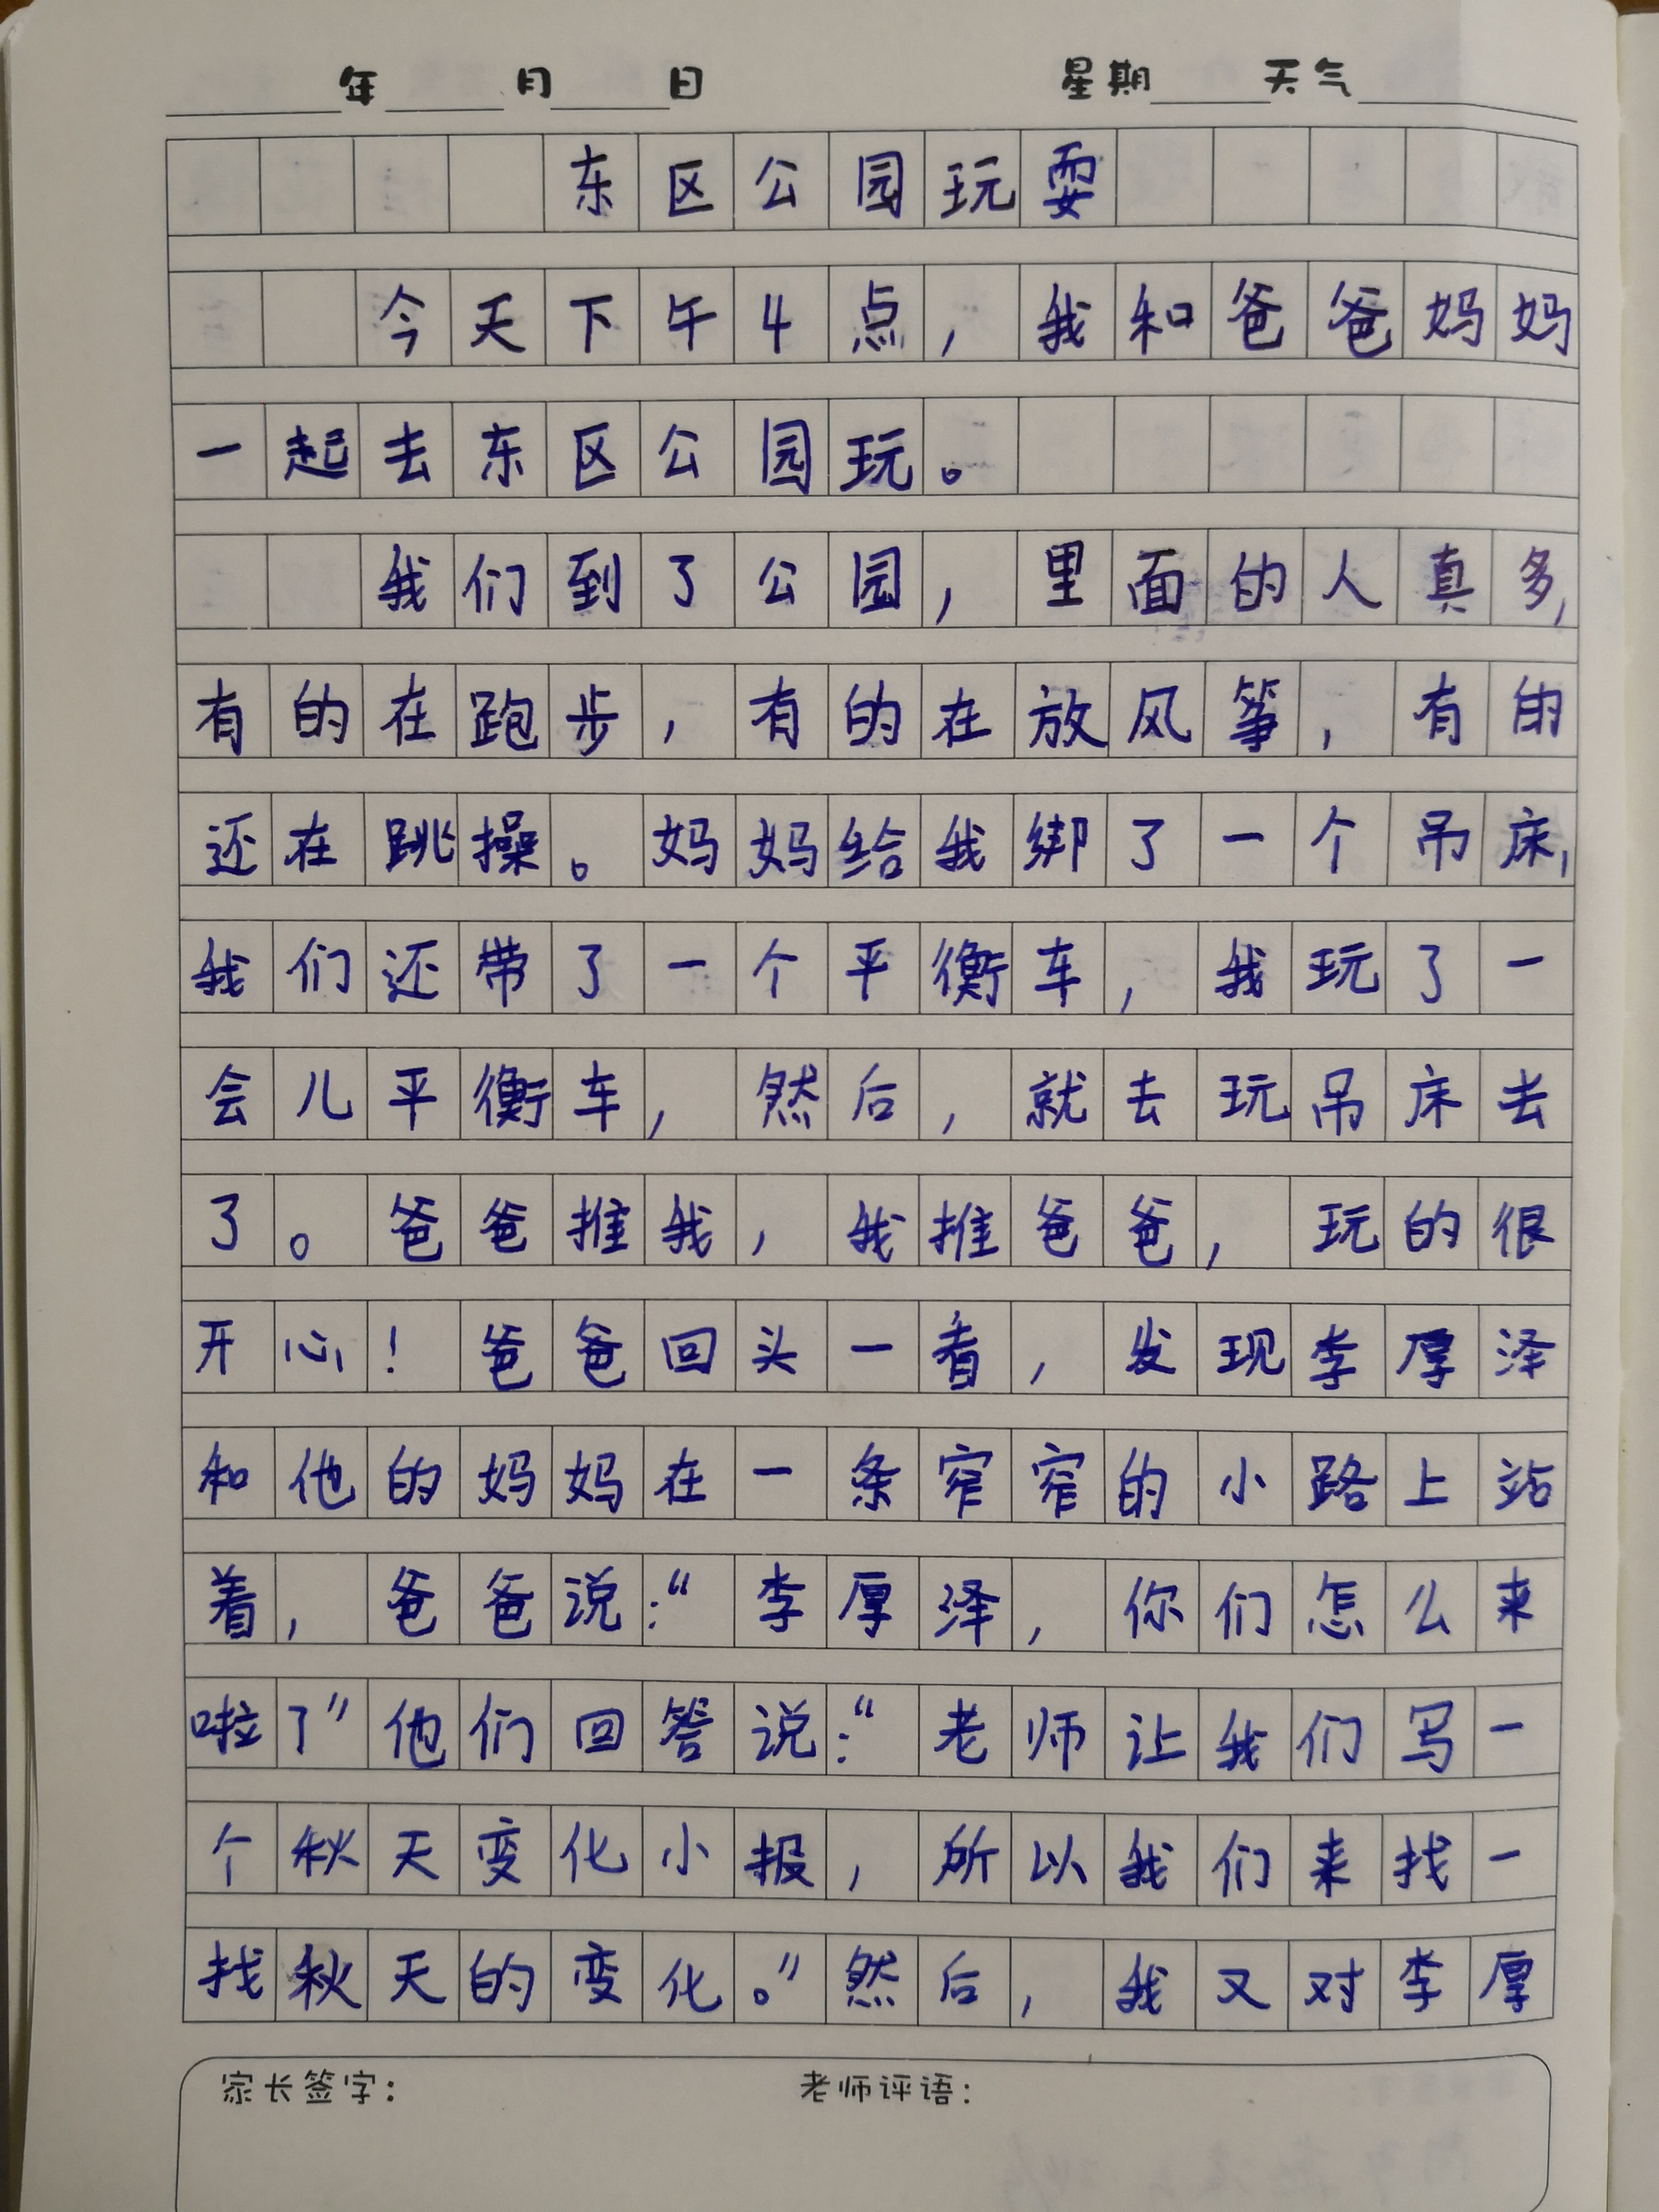 年 月 日 星期 天气
东区公园玩耍
今天下午4点，我和爸爸妈妈
一起去东区公园玩。
我们到了公园，里面的人真多，
有的在跑步，有的在放风筝，有的
还在跳操。妈妈给我绑了一个吊床，
我们还带了一个平衡车，我玩了一
会儿平衡车，然后，就去玩吊床去
了。爸爸推我，我推爸爸，玩的很
开心！爸爸回头一看，发现李厚泽
和他的妈妈在一条窄窄的小路上站
着，爸爸说：“李厚泽，你们怎么来
啦了”他们回答说：“老师让我们写一
个秋天变化小报，所以我们来找一
找秋天的变化。”然后，我又对李厚
家长签字： 老师评语：